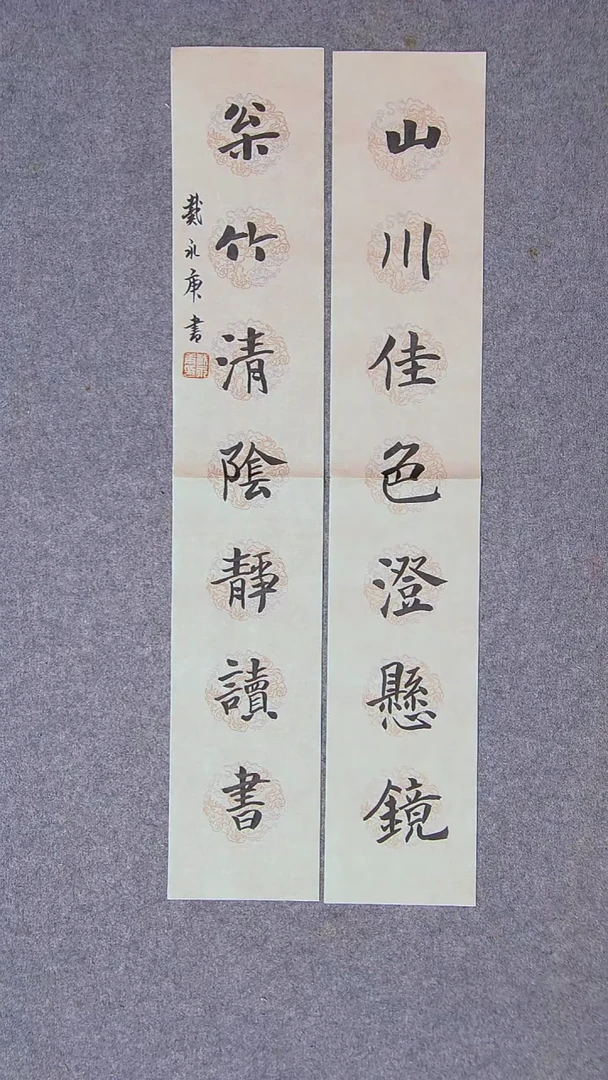 山川佳色澄懸鏡
枀竹清陰靜讀書
戴永庚書